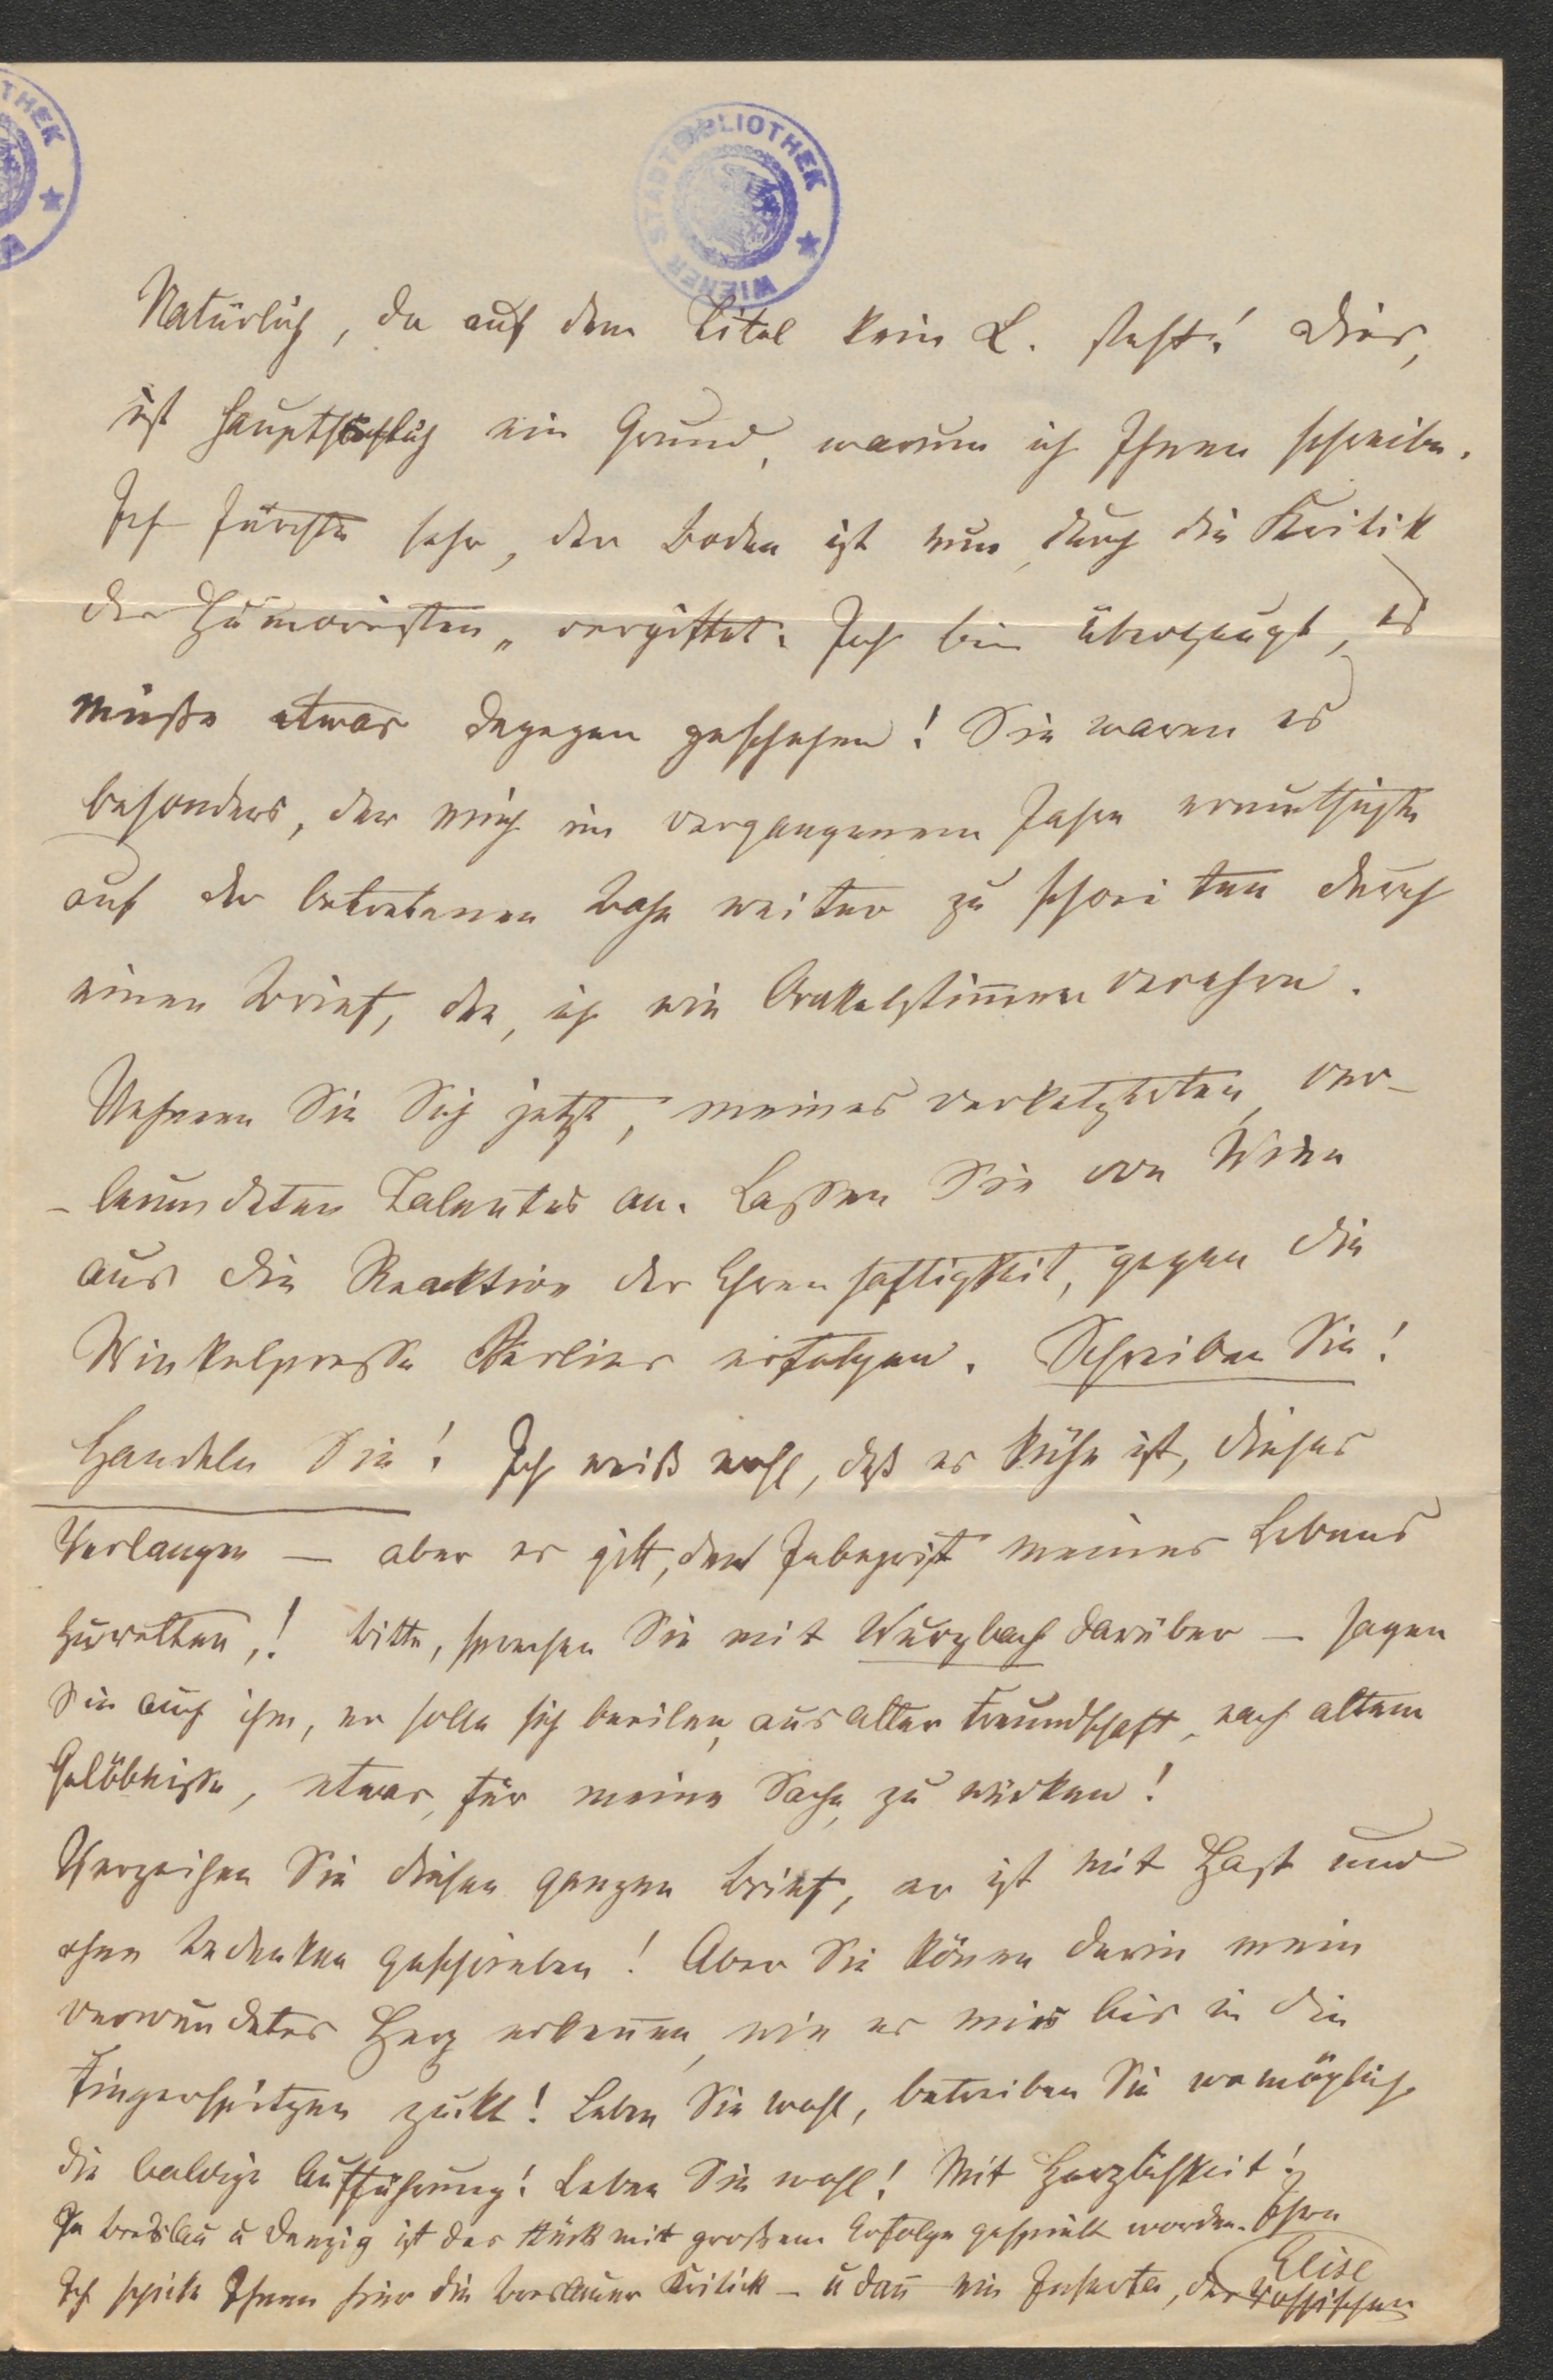 WIENER STADTBIBLIOTHEK
THEK
Natürlich, da auf dem Titel kein L. steht! Dies,
ist hauptsächlich ein Grund, warum ich Ihnen schreibe.
Ich fürchte sehr, der Boden ist nun, durch die Kritik
der Humoristen „ vergiftet. Ich bin überzeugt, es
müße etwas dagegen geschehen! Sie waren es
besonders, der mich im vergangenem Jahre ermuthigte
auf der betretenen Bahn weiter zu schreiten durch
einen Brief, den, ich wie Orakelstimmen verehre.
Nehmen Sie Sich jetzt, meines verketzterten, ver-
-leumdeten Talentes an. Lassen Sie von Wien
aus die Reaktion der Ehrenhaftigkeit, gegen die
Winkelpresse Berlins erfolgen. Schreiben Sie!
Handeln Sie! Ich weiß wohl, daß es kühn ist, dieses
Verlangen — aber es gilt, den Inbegrift meines Lebens
zu retten,! bitte, sprechen Sie mit Wurzbach darüber — sagen
Sie auch ihm, er solle sich beeilen, aus alter Freundschaft, nach altem
Gelöbnisse, etwas, für meine Sache, zu wirken!
Verzeihen Sie diesen ganzen Brief, er ist mit Hast und
ohne Bedenken geschrieben! Aber Sie könen darin mein
verwundetes Herz erkennen, wie es mir bis in die
Fingerspitzen zuckt! Leben Sie wohl, betreiben Sie womöglich
die baldige Aufführung! Leben Sie wohl! Mit Herzlichkeit!
In Breslau u Danzig ist das Stück mit großem Erfolge gespielt worden. Ihre
Elise
Ich schicke Ihnen hier die Breslauer Kritick — u dan ein Inserta, der Vossischen